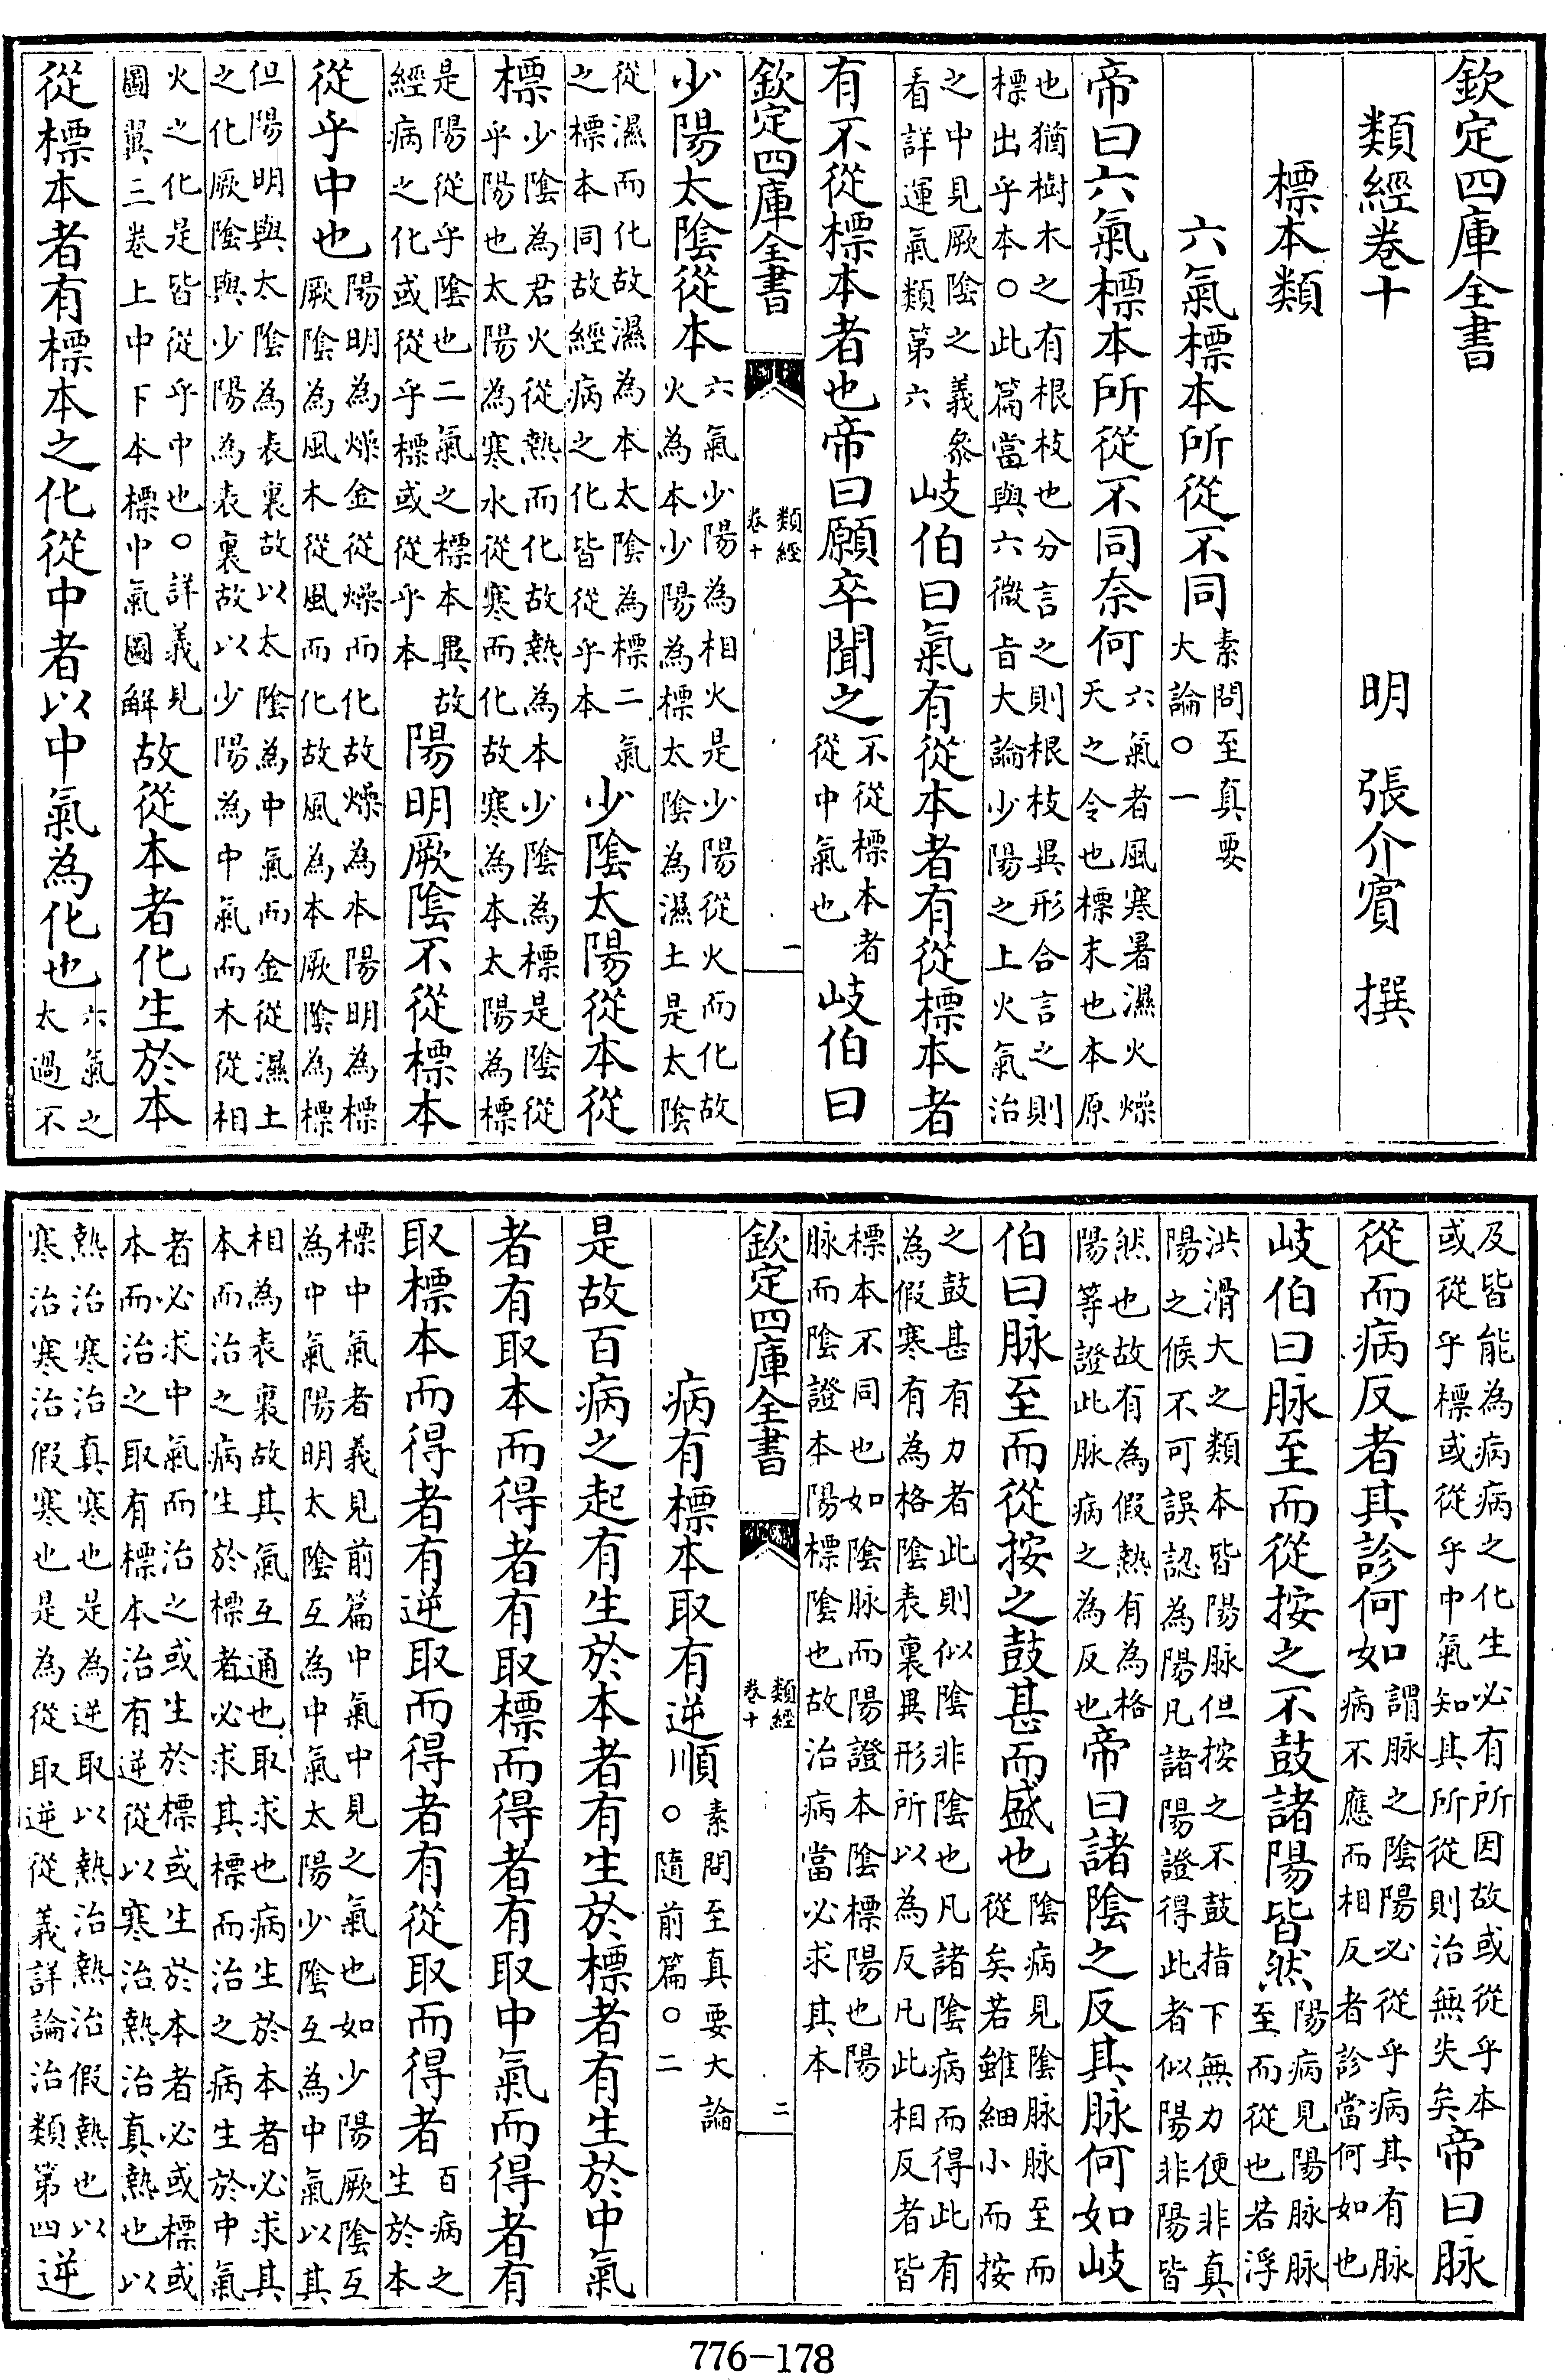 欽定四庫全書
類經卷十　明　張介賓　撰
標本類
六氣標本所從不同素問至真要大論○一
帝曰六氣標本所從不同奈何六氣者風寒暑濕火燥天之令也標末也本原
也猶樹木之有根枝也分言之則根枝異形合言之則標出乎本○此篇當與六微旨大論少陽之上火氣治
之中見厥陰之義參看詳運氣類第六岐伯曰氣有從本者有從標本者
有不從標本者也帝曰願卒聞之不從標本者從中氣也岐伯曰
欽定四庫全書　類經卷十　一
少陽太陰從本六氣少陽為相火是少陽從火而化故火為本少陽為標太陰為濕土是太陰
從濕而化故濕為本太陰為標二氣之標本同故經病之化皆從乎本少陰太陽從本從
標少陰為君火從熱而化故熱為本少陰為標是陰從乎陽也太陽為寒水從寒而化故寒為本太陽為標
是陽從乎陰也二氣之標本異故經病之化或從乎標或從乎本陽明厥陰不從標本
從乎中也陽明為燥金從燥而化故燥為本陽明為標厥陰為風木從風而化故風為本厥陰為標
但陽明與太陰為表裏故以太陰為中氣而金從濕土之化厥陰與少陽為表裏故以少陽為中氣而木從相
火之化是皆從乎中也○詳義見圖翼三卷上中下本標中氣圖解故從本者化生於本
從標本者有標本之化從中者以中氣為化也六氣之太過不
及皆能為病病之化生必有所因故或從乎本或從乎標或從乎中氣知其所從則治無失矣帝曰脉
從而病反者其診何如謂脉之陰陽必從乎病其有脉病不應而相反者診當何如也
岐伯曰脉至而從按之不鼓諸陽皆然陽病見陽脉脉至而從也若浮
洪滑大之類本皆陽脉但按之不鼓指下無力便非真陽之候不可誤認為陽凡諸陽證得此者似陽非陽皆
然也故有為假熱有為格陽等證此脉病之為反也帝曰諸陰之反其脉何如岐
伯曰脉至而從按之鼓甚而盛也陰病見陰脉脉至而從矣若雖細小而按
之鼓甚有力者此則似陰非陰也凡諸陰病而得此有為假寒有為格陰表裏異形所以為反凡此相反者皆
標本不同也如陰脉而陽證本陰標陽也陽脉而陰證本陽標陰也故治病當必求其本
欽定四庫全書　類經卷十　二
病有標本取有逆順素問至真要大論○隨前篇○二
是故百病之起有生於本者有生於標者有生於中氣
者有取本而得者有取標而得者有取中氣而得者有
取標本而得者有逆取而得者有從取而得者百病之生於本
標中氣者義見前篇中氣中見之氣也如少陽厥陰互為中氣陽明太陰互為中氣太陽少陰互為中氣以其
相為表裏故其氣互通也取求也病生於本者必求其本而治之病生於標者必求其標而治之病生於中氣
者必求中氣而治之或生於標或生於本者必或標或本而治之取有標本治有逆從以寒治熱治真熱也以
熱治寒治真寒也是為逆取以熱治熱治假熱也以寒治寒治假寒也是為從取逆從義詳論治類第四逆
776-178